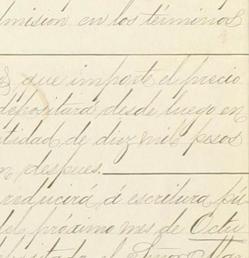 misión en los términos
que importe el precio
depositará desde luego en
tidad de diez mil pesos
después.
reducirá á escritura pú
próximo mes de Octu
el Señor